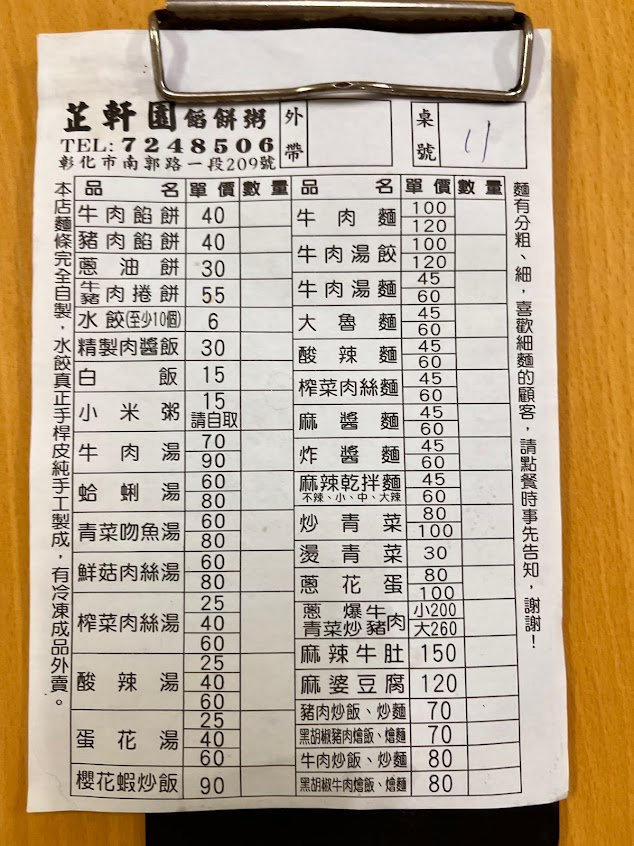 芷軒園餡餅粥
TEL: 7248506
彰化市南郭路一段209號
外帶
桌號 11
本店麵條完全自製，水餃真正手桿皮純手工製成，有冷凍成品外賣。
品名 單價 數量
牛肉餡餅 40
豬肉餡餅 40
蔥油餅 30
牛豬肉捲餅 55
水餃(至少10個) 6
精製肉醬飯 30
白飯 15
小米粥 15 請自取
牛肉湯 70 90
蛤蜊湯 60 80
青菜吻魚湯 60 80
鮮菇肉絲湯 60 80
榨菜肉絲湯 25 40 60
酸辣湯 25 40 60
蛋花湯 25 40 60
櫻花蝦炒飯 90
品名 單價 數量
牛肉麵 100 120
牛肉湯餃 100 120
牛肉湯麵 45 60
大魯麵 45 60
酸辣麵 45 60
榨菜肉絲麵 45 60
麻醬麵 45 60
炸醬麵 45 60
麻辣乾拌麵 45 60
不辣、小、中、大辣
炒青菜 80 100
燙青菜 30
蔥花蛋 80 100
蔥爆牛肉 小200
青菜炒豬肉 大260
麻辣牛肚 150
麻婆豆腐 120
豬肉炒飯、炒麵 70
黑胡椒豬肉燴飯、燴麵 70
牛肉炒飯、炒麵 80
黑胡椒牛肉燴飯、燴麵 80
麵有分粗、細，喜歡細麵的顧客，請點餐時事先告知，謝謝！